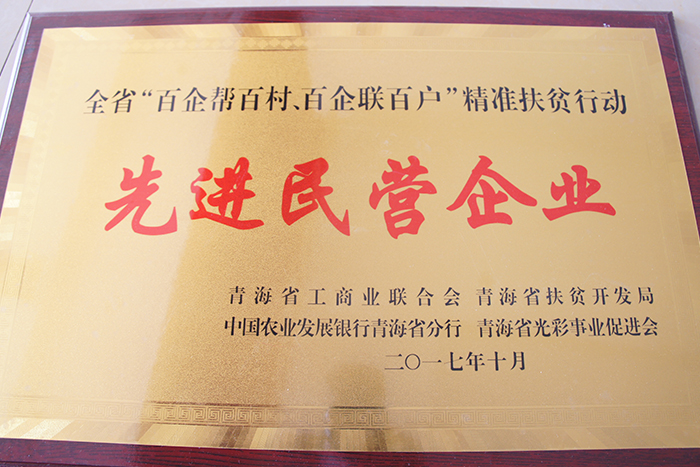 全省“百企帮百村、百企联百户”精准扶贫行动
先进民营企业
青海省工商业联合会 青海省扶贫开发局
中国农业发展银行青海省分行 青海省光彩事业促进会
二〇一七年十月